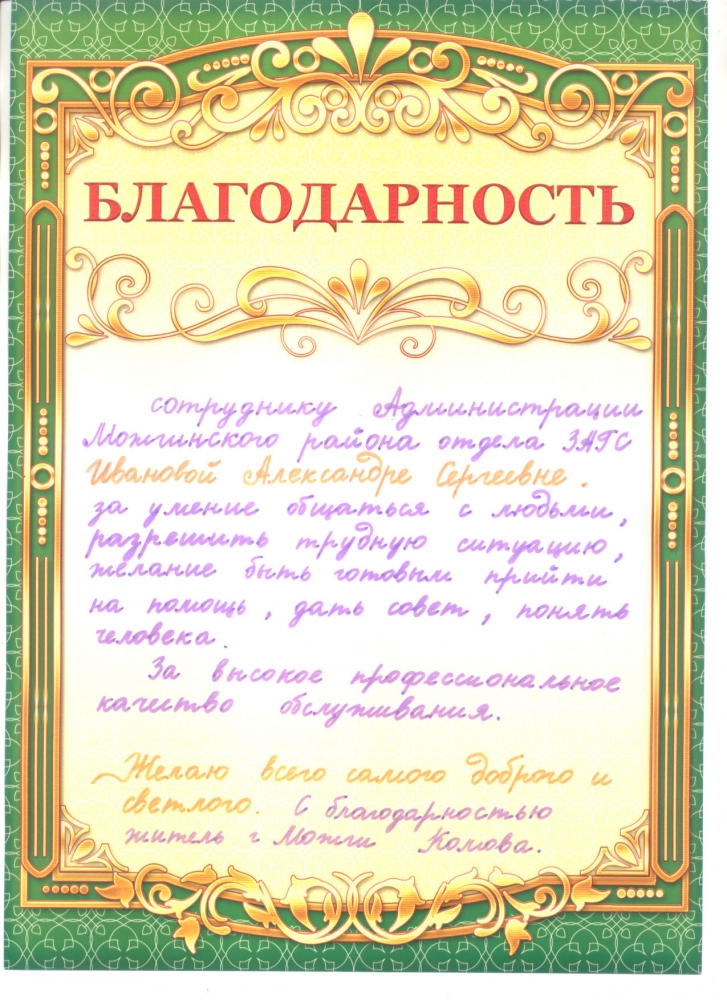 БЛАГОДАРНОСТЬ
сотруднику Администрации
Можгинского района отдела ЗАГС
Ивановой Александре Сергеевне.
за умение общаться с людьми,
разрешить трудную ситуацию,
желание быть готовым прийти
на помощь, дать совет, понять
человека.
За высокое профессиональное
качество обслуживания.
Желаю всего самого доброго и
светлого. С благодарностью
житель г Можги